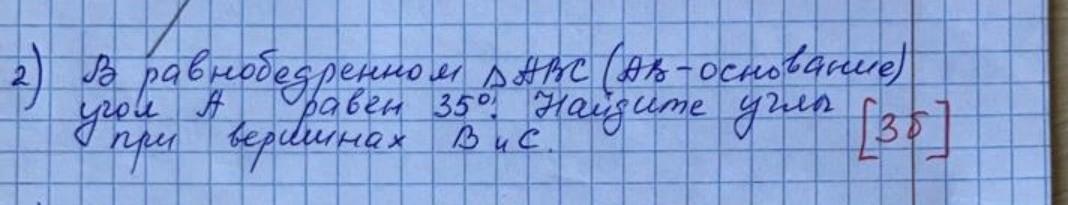 2) В равнобедренном △ABC (AB-основание)
угол A равен 35°. Найдите углы
при вершинах B и C.
[3б]